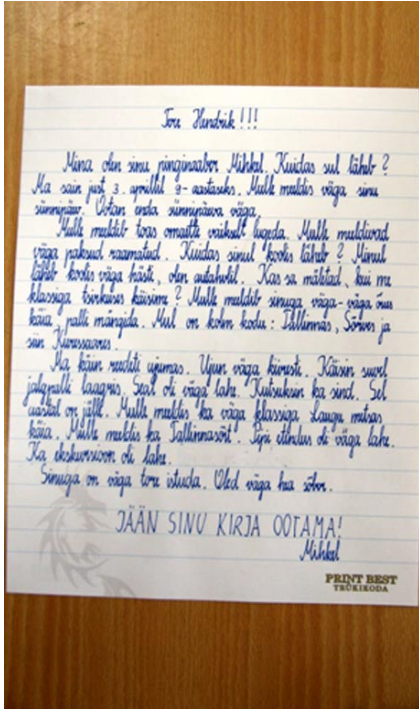 Tere Hendrik!!!
Mina olen sinu pinginaaber Mihkel. Kuidas sul läheb?
Ma sain just 3. aprillil 9-aastaseks. Mulle meeldis väga sinu
sünnipäev. Ootan enda sünnipäeva väga.
Mulle meeldib toas omaette vaikselt lugeda. Mulle meeldivad
väga paksud raamatud. Kuidas sinul koolis läheb? Minul
läheb koolis väga hästi, olen autahvlil. Kas sa mäletad, kui me
klassiga tsirkuses käisime? Mulle meeldib sinuga väga-väga õues
käia, palli mängida. Mul on kolm kodu: Tallinnas, Sõrves ja
siin Kuressaares.
Ma käin reedeti ujumas. Ujun väga kiiresti. Käisin suvel
jalgpalli laagris. Seal oli väga lahe. Kutsuksin ka sind. Sel
aastal on jälle. Mulle meeldis ka väga klassiga Laugu metsas
käia. Mulle meeldis ka Tallinnasõit. Pipi etendus oli väga lahe.
Ka ekskursioon oli lahe.
Sinuga on väga tore istuda. Oled väga hea sõber.
JÄÄN SINU KIRJA OOTAMA!
Mihkel
PRINT BEST
TRÜKIKODA